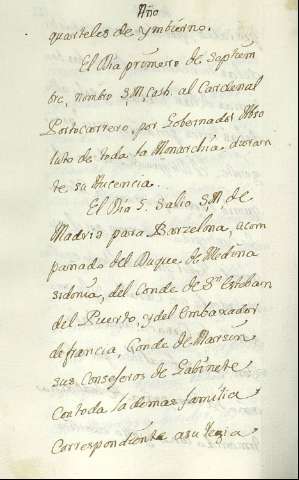 Año
quarteles de ymbierno.
El Dia primero de Septiem
bre, nombro S.M. Cath. al Cardenal
Portocarrero, por Gobernador Abso
luto de toda la Monarchia duran
te su Aucencia.
El Dia 5. Salio S.M. de
Madrid para Barzelona, acom
pañado del Duque de Medina
sidonia, del Conde de Sn. Esteban
del Puerto, y del embaxador
de francia, Conde de Marsin
sus Consejeros de Gabinete
con toda la demas familia
Correspondiente a su Regia